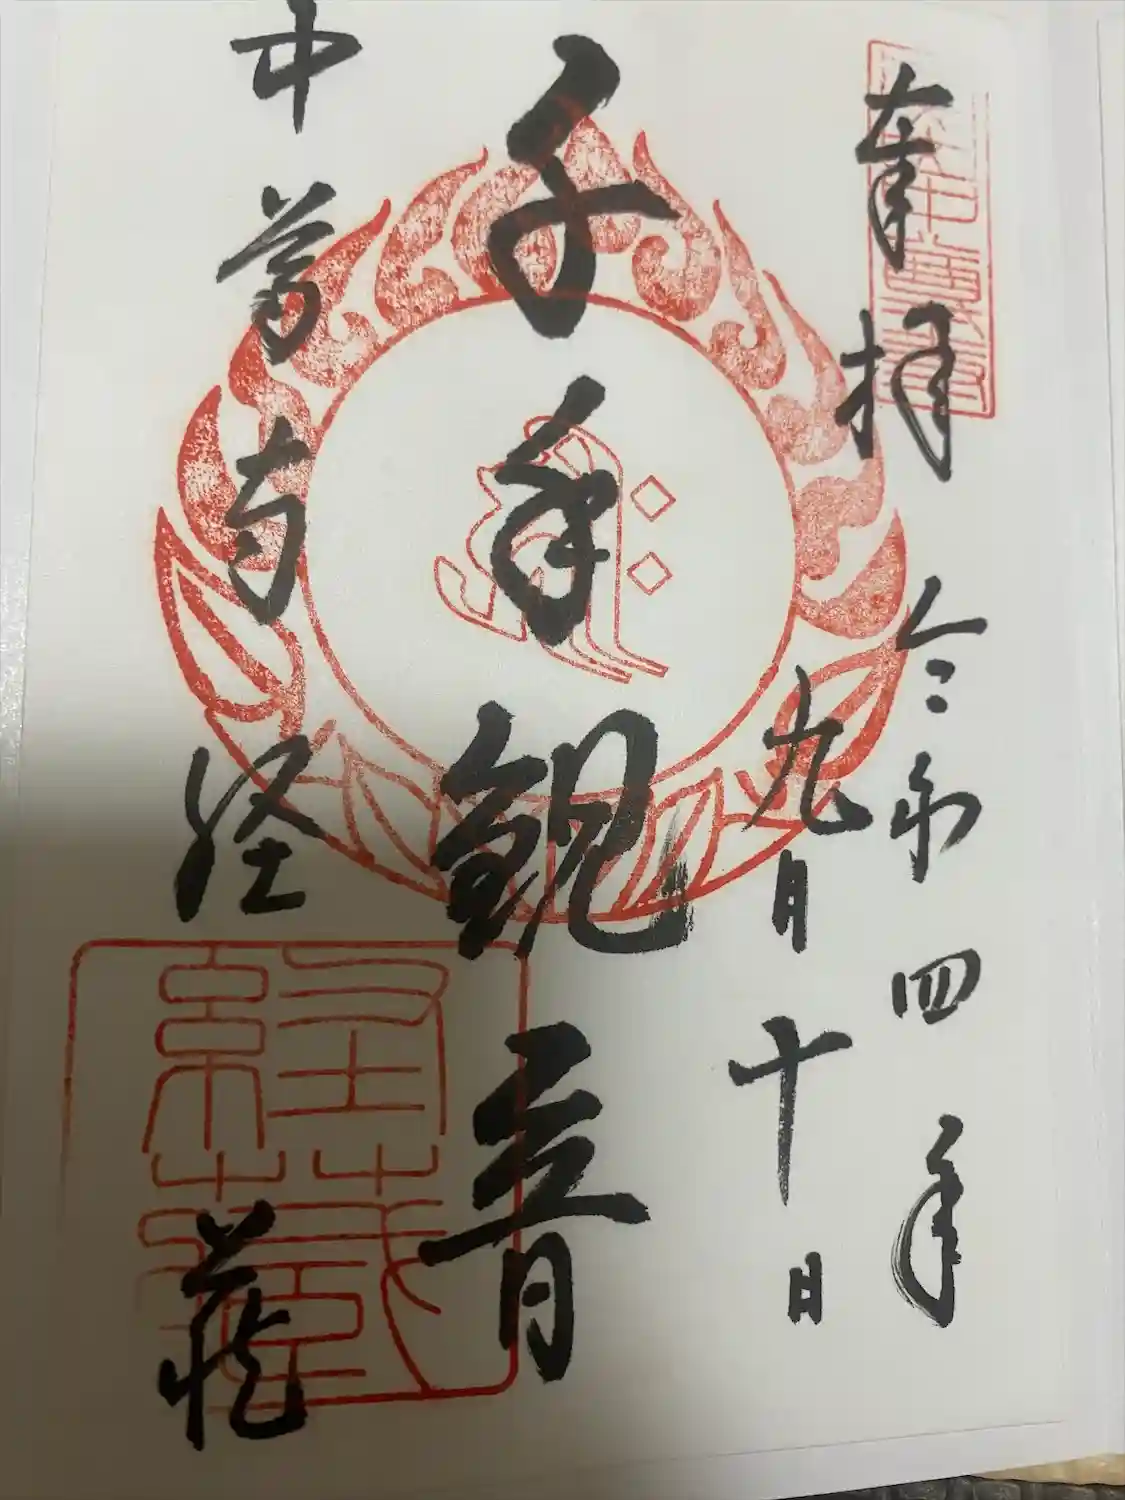 奉拝
令和四年
九月十日
千手観音
中尊寺
経蔵
經藏